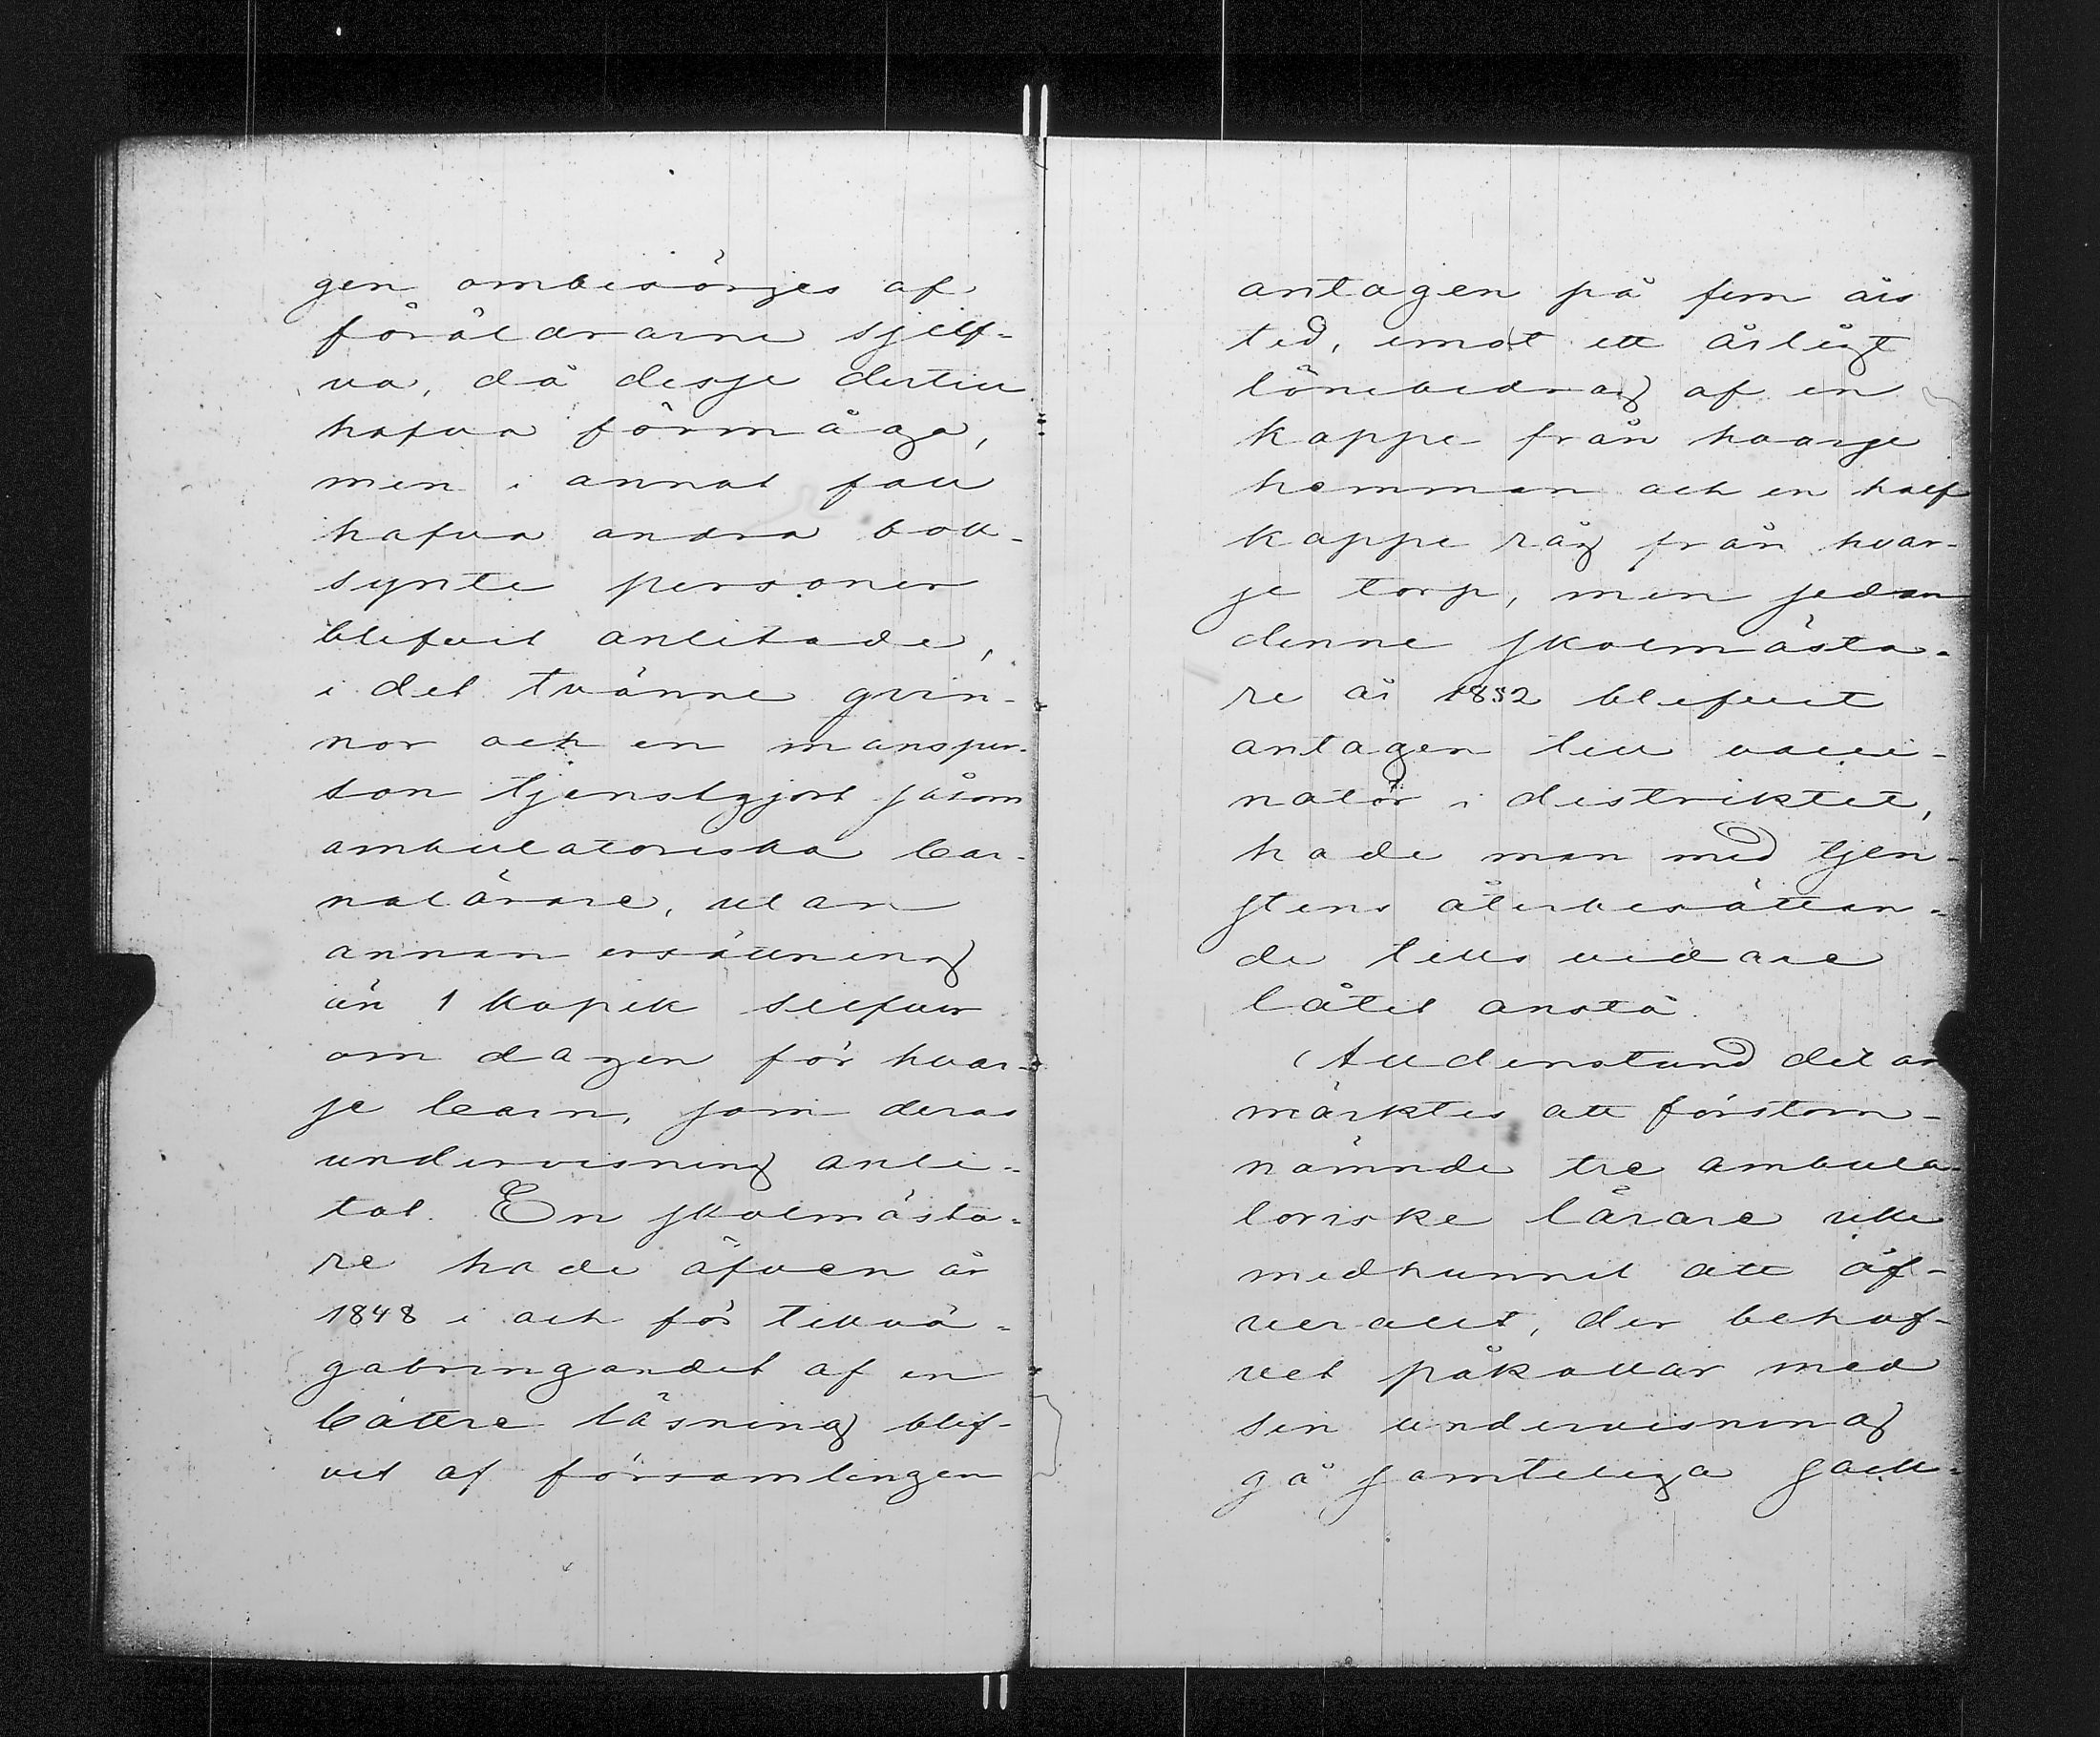 gen ombesörjes af
föräldrarne sjelf-
va, då desse dertill
hafva förmåga,
men i annat fall
hafva andra bok-
synte personer
blifvit anlitade,
i det tvänne qvin-
nor och en mansper-
son tjenstgjort såsom
ambulatoriska bar-
nalärare, utan
annan ersättning
än 1 kopek silfver
om dagen för hvar-
je barn, som deras
undervisning anli-
tat. En skolmästa-
re hade äfven år
1848 i och för tillvä-
gabringandet af en
bättre läsning blif-
vit af församlingen
antagen på fem års
tid, emot ett årligt
lönebidrag af en
kappe från hvarje
hemman och en half
kappe råg från hvar-
je torp, men sedan
denne skolmästa-
re år 1852 blifvit
antagen till vacci-
natör i distriktet,
hade man med tjen-
stens återbesättan-
de tills vidare
låtit anstå.
Alldenstund det an
märktes att förstom-
nämnde tre ambula-
toriske lärare icke
medhunnit att öf-
verallt, der behof-
vet påkallar med
sin undervisning
gå samteliga